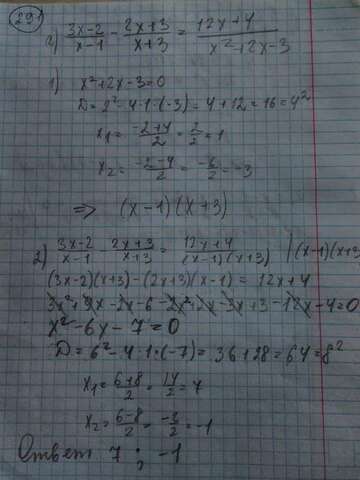 291
2) (3x-2)/(x-1) - (2x+3)/(x+3) = (12x+4)/(x²+2x-3)
1) x²+2x-3=0
D=2²-4·1·(-3)=4+12=16=4²
x₁=(-2+4)/2=2/2=1
x₂=(-2-4)/2=-6/2=-3
=> (x-1)(x+3)
2) (3x-2)/(x-1) (2x+3)/(x+3) = (12x+4)/((x-1)(x+3) |(x-1)(x+3
(3x-2)(x+3)-(2x+3)(x-1)=12x+4
3x²+9x-2x-6-2x²+2x-3x+3-12x-4=0
x²-6x-7=0
D=6²-4·1·(-7)=36+28=64=8²
x₁=(6+8)/2=14/2=7
x₂=(6-8)/2=-2/2=-1
Ответ 7 ; -1